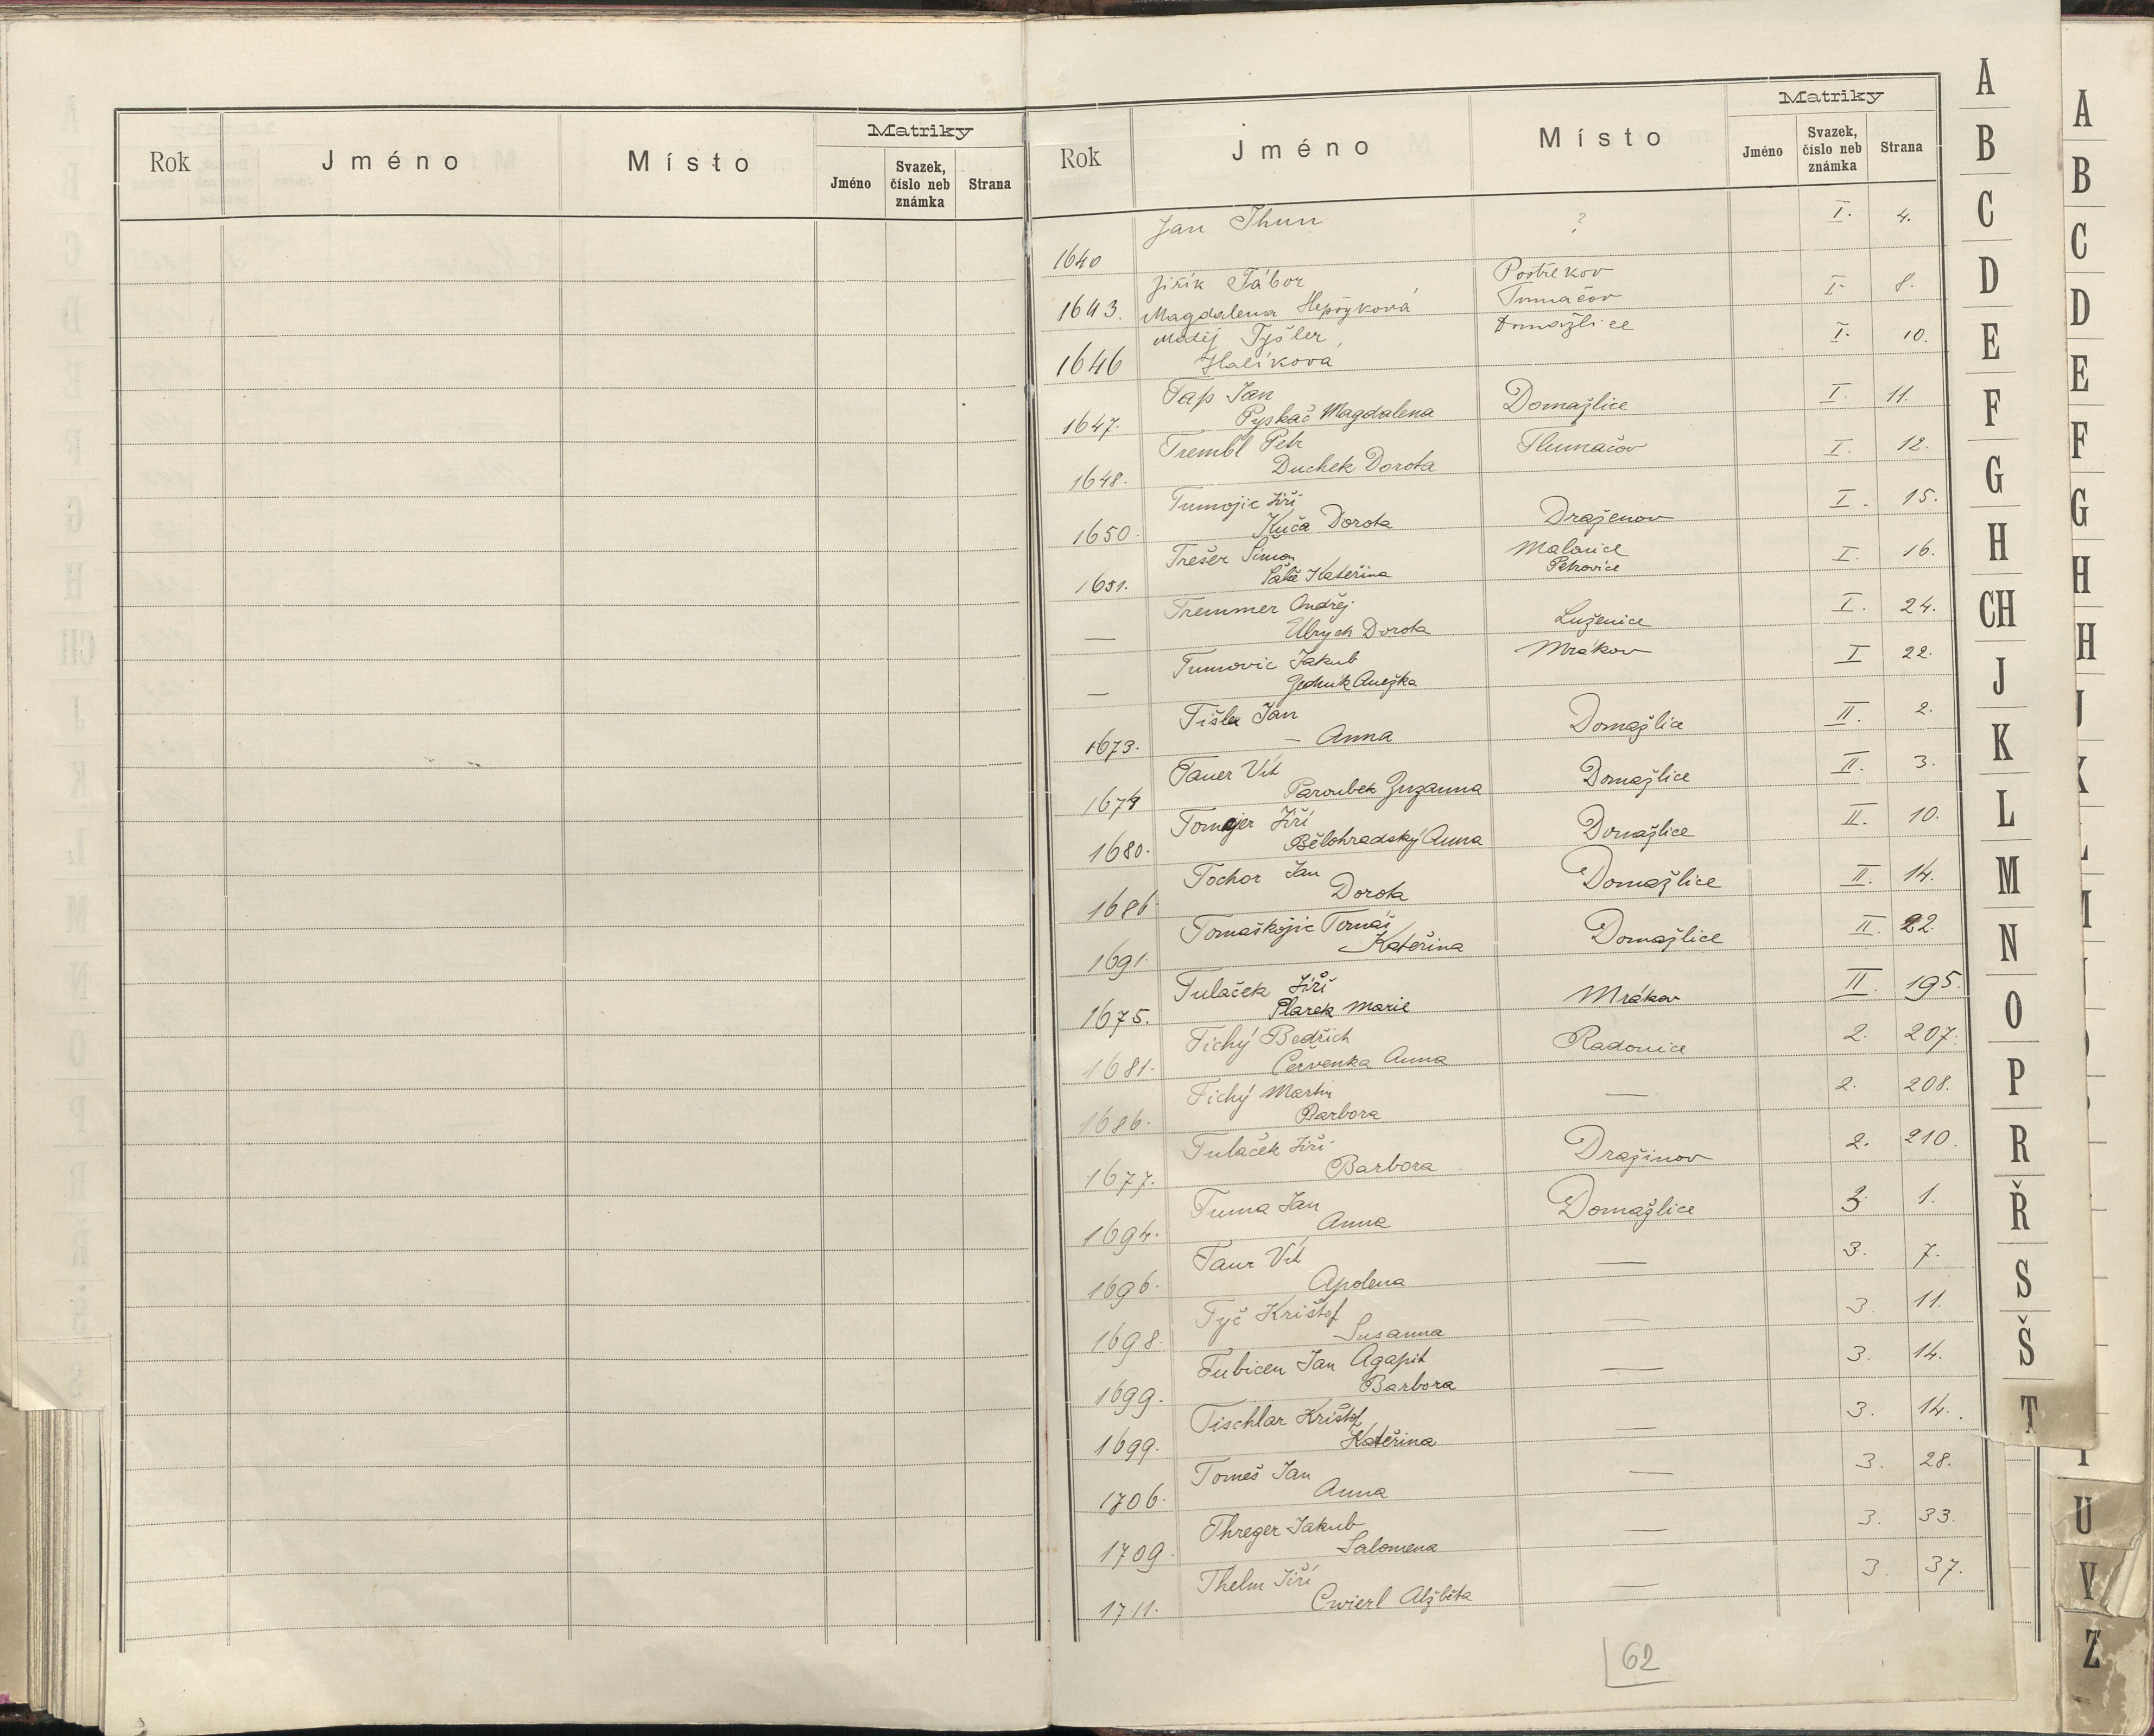 Rok Jméno Místo Matriky
Jméno Svazek, číslo neb známka Strana
Rok Jméno Místo Matriky
Jméno Svazek, číslo neb známka Strana
1640 Jan Thun ? I. 4.
Jiřík Tábor Postřekov
1643. Magdalena Tumačov I. 8.
Matěj Tyšler, Domažlice
1646 Halíkova I. 10.
Tap Jan
1647. Pyskač Magdalena Domažlice I. 11.
Trembl Petr Tlumačov
1648. Duchek Dorota I. 12.
Tumojic Jiří
1650. Kuča Dorota Draženov I. 15.
Trešer Šimon Malonice
1651. Kateřina Petrovice I. 16.
Tremmer Ondřej
— Ulrych Dorota Luženice I. 24.
Tumovic Jakub Mrákov
— Anežka I 22.
Tišler Jan
1673. — Anna Domažlice II. 2.
Tauer Vít
1674 Paroubek Zuzanna Domažlice II. 3.
Tomajer Jiří
1680. Bělohradský Anna Domažlice II. 10.
Tochor Jan
1686. Dorota Domažlice II. 14.
Tomaškojic Tomáš
1691. Kateřina Domažlice II. 22.
Tulaček Jiří
1675. Plarek Marie Mrákov II. 195.
Tichý Bedřich
1681. Červenka Anna Radonice 2. 207.
Tichý Martin
1686. Barbora — 2. 208.
Tulaček Jiří
1677. Barbora Dražinov 2. 210.
Tuma Jan
1694. Anna Domažlice 3. 1.
Taur Vít
1696. Apolena — 3. 7.
Tyč Krištof
1698. Susanna — 3. 11.
Tubicen Jan Agapit
1699. Barbora — 3. 14.
Tischlar Krištof
1699. Kateřina — 3. 14.
Tomeš Jan
1706. Anna — 3. 28.
Threger Jakub
1709. Salomena — 3. 33.
Thelm Jiří
1711. Cwierl Alžběta — 3. 37.
62
A
B
C
D
E
F
G
H
CH
J
K
L
M
N
O
P
R
Ř
S
Š
T
A
B
C
D
E
F
G
H
H
U
V
Z